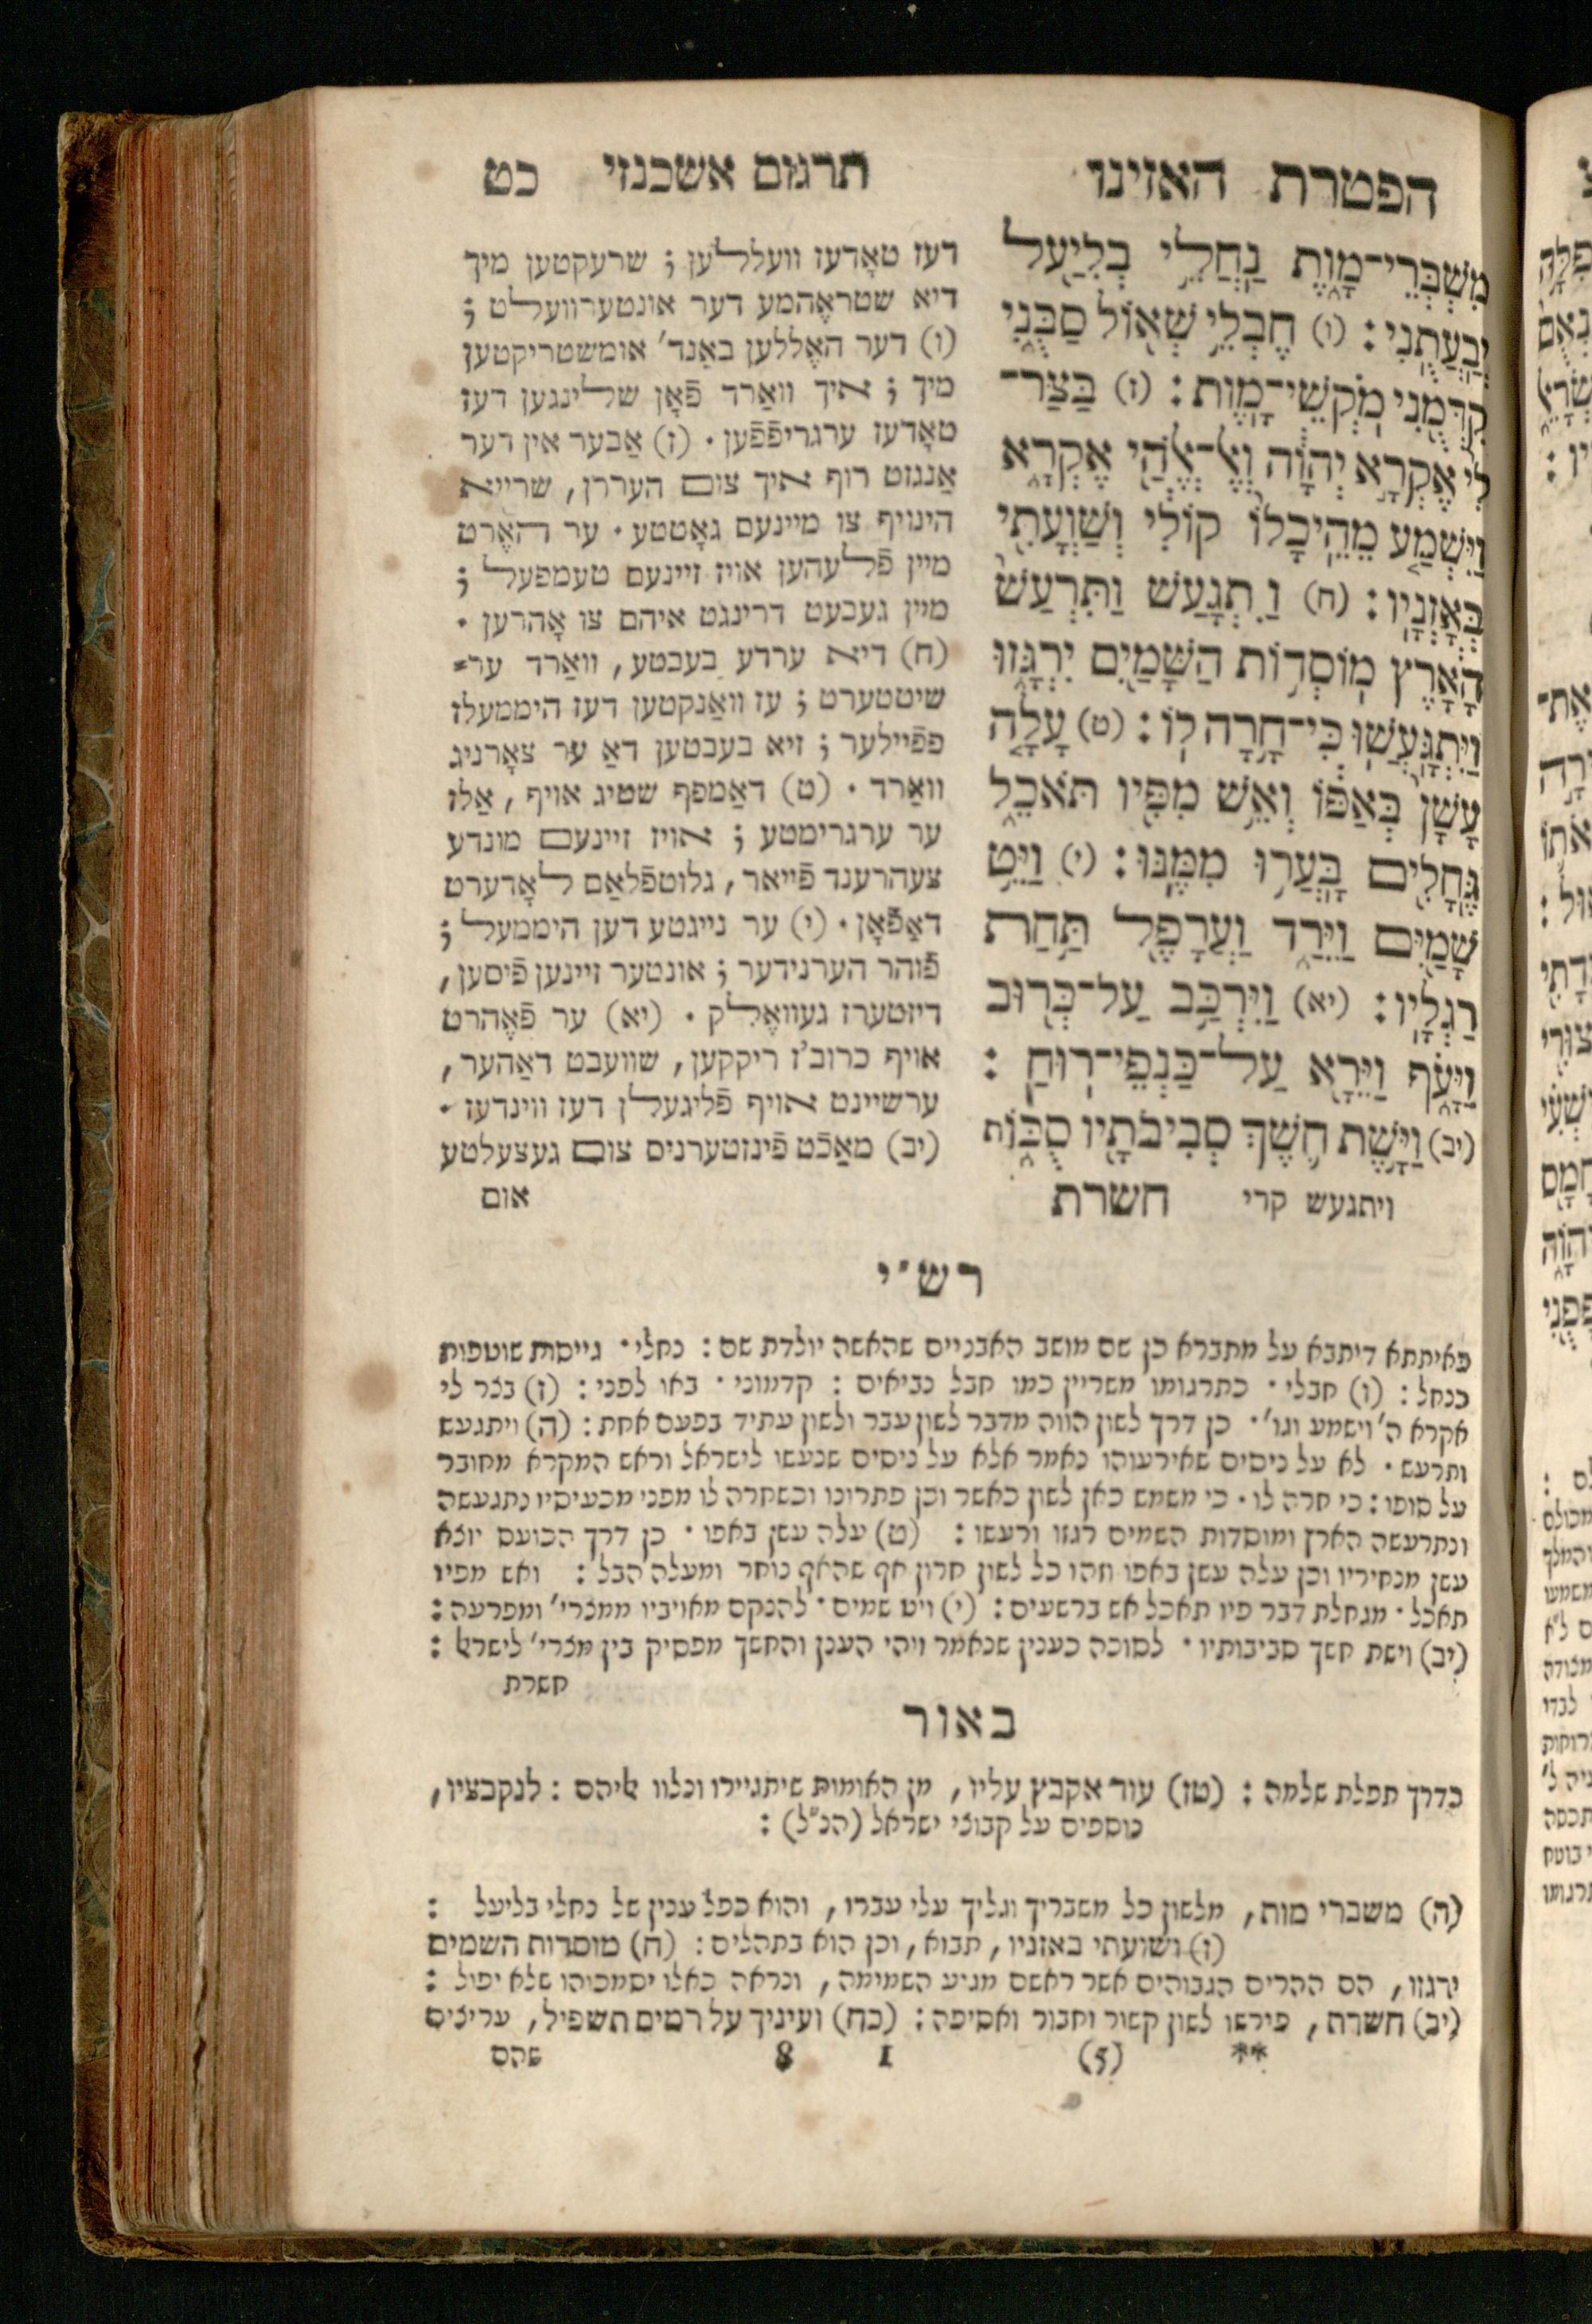 הפטרת האזינו
תרגום אשכנזי כט
מִשְׁבְּרֵי־מָוֶת נַחֲלֵי בְלִיַּעַל
יְבַעֲתֻנִי׃ (ו) חֶבְלֵי שְׁאוֹל סַבֻּנִי
קִדְּמֻנִי מֹקְשֵׁי־מָוֶת׃ (ז) בַּצַּר־
לִי אֶקְרָא יְהוָה וְאֶל־אֱלֹהַי אֶקְרָא
וַיִּשְׁמַע מֵהֵיכָלוֹ קוֹלִי וְשַׁוְעָתִי
בְּאָזְנָיו׃ (ח) וַתִּתְגָּעַשׁ וַתִּרְעַשׁ
הָאָרֶץ מוֹסְדוֹת הַשָּׁמַיִם יִרְגָּזוּ
וַיִּתְגָּעֲשׁוּ כִּי־חָרָה לוֹ׃ (ט) עָלָה
עָשָׁן בְּאַפּוֹ וְאֵשׁ מִפִּיו תֹּאכֵל
גֶּחָלִים בָּעֲרוּ מִמֶּנּוּ׃ (י) וַיֵּט
שָׁמַיִם וַיֵּרַד וַעֲרָפֶל תַּחַת
רַגְלָיו׃ (יא) וַיִּרְכַּב עַל־כְּרוּב
וַיָּעֹף וַיֵּרָא עַל־כַּנְפֵי־רוּחַ׃
(יב) וַיָּשֶׁת חֹשֶׁךְ סְבִיבֹתָיו סֻכּוֹת
ויתגעש קרי חשרת
דעז טאָדעז וועללען ; שרעקטען מיך
דיא שטראָהמע דער אונטערוועלט ;
(ו) דער האֶללען באַנד' אומשטריקטען
מיך ; איך וואַרד פֿאָן שלינגען דעז
טאָדעז ערגריפֿפֿען . (ז) אַבער אין דער
אַנגזט רוף איך צום העררן, שרייא
הינויף צו מיינעם גאָטטע . ער האֶרט
מיין פֿלעהען אויז זיינעם טעמפעל ;
מיין געבעט דרינגט איהם צו אָהרען .
(ח) דיא ערדע בעבטע, וואַרד ער=
שיטטערט ; עז וואַנקטען דעז היממעלז
פפֿיילער ; זיא בעבטען דאַ ער צאָרניג
וואַרד . (ט) דאַמפף שטיג אויף, אַלז
ער ערגרימטע ; אויז זיינעם מונדע
צעהרענד פֿייאר, גלוטפֿלאַם לאָדערט
דאַפֿאָן . (י) ער נייגטע דען היממעל ;
פֿוהר הערנידער ; אונטער זיינען פֿיסען,
דיזטערז געוואֶלק . (יא) ער פֿאֶהרט
אויף כרוב'ז ריקקען, שוועבט דאַהער,
ערשיינט אויף פֿליגעלן דעז ווינדעז .
(יב) מאַכֿט פֿינזטערניס צום געצעלטע
אום
רש"י
כאיתתא דיתבא על מתברא כן שם מושב האבניים שהאשה יולדת שם : נחלי . גייסות שוטפות
כנחל : (ו) חבלי . כתרגומו משריין כמו חבל נביאים : קדמוני . באו לפני : (ז) בצר לי
אקרא ה' וישמע וגו' . כן דרך לשון הווה מדבר לשון עבר ולשון עתיד בפעם אחת : (ח) ויתגעש
ותרעש . לא על ניסים שאירעוהו נאמר אלא על ניסים שנעשו לישראל וראש המקרא מחובר
על סופו : כי חרה לו . כי משמש כאן לשון כאשר וכן פתרונו וכשחרה לו מפני מכעיסיו נתגעשה
ונתרעשה הארץ ומוסדות השמים רגזו ורעשו : (ט) עלה עשן באפו . כן דרך הכועס יוצא
עשן מנחיריו וכן עלה עשן באפו וזהו כל לשון חרון אף שהאף נוחר ומעלה הבל : ואש מפיו
תאכל . מגחלת דבר פיו תאכל אש ברשעים : (י) ויט שמים . להנקם מאויביו ממצרי' ומפרעה :
(יב) וישת חשך סביבותיו . לסוכה כענין שנאמר ויהי הענן והחשך מפסיק בין מצרי' לישראל :
חשרת
באור
בדרך תפלת שלמה : (טז) עוד אקבץ עליו, מן האומות שיתגיירו ונלוו אליהם : לנקבציו,
נוספים על קבוצי ישראל (הנ"ל) :
(ה) משברי מות, מלשון כל משבריך וגליך עלי עברו, והוא כפל ענין של נחלי בליעל :
(ז) ושועתי באזניו, תבוא, וכן הוא בתהלים : (ח) מוסדות השמים
ירגזו, הם ההרים הגבוהים אשר ראשם מגיע השמימה, ונראה כאלו יסמכוהו שלא יפול :
(יב) חשרת, פירשו לשון קשור וחבור ואסיפה : (כח) ועיניך על רמים תשפיל, עריצים
** (5) 1 8 שהם